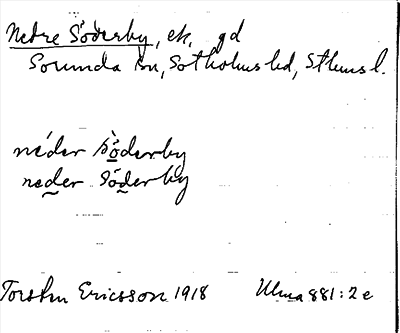 Nedre Söderby, ek, gd
Sorunda sn, Sotholms hd, Sthms l.
néder sö̀derby
neder söderby
Torsten Ericsson 1918 Ulma 881:2e